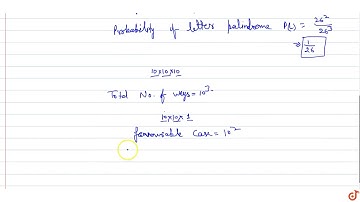 Probability of letter palindrome P(L) = 26²/26³
⇒ 1/26
10×10×10
Total No. of ways = 10³
10×10×1
favourable Case = 10²